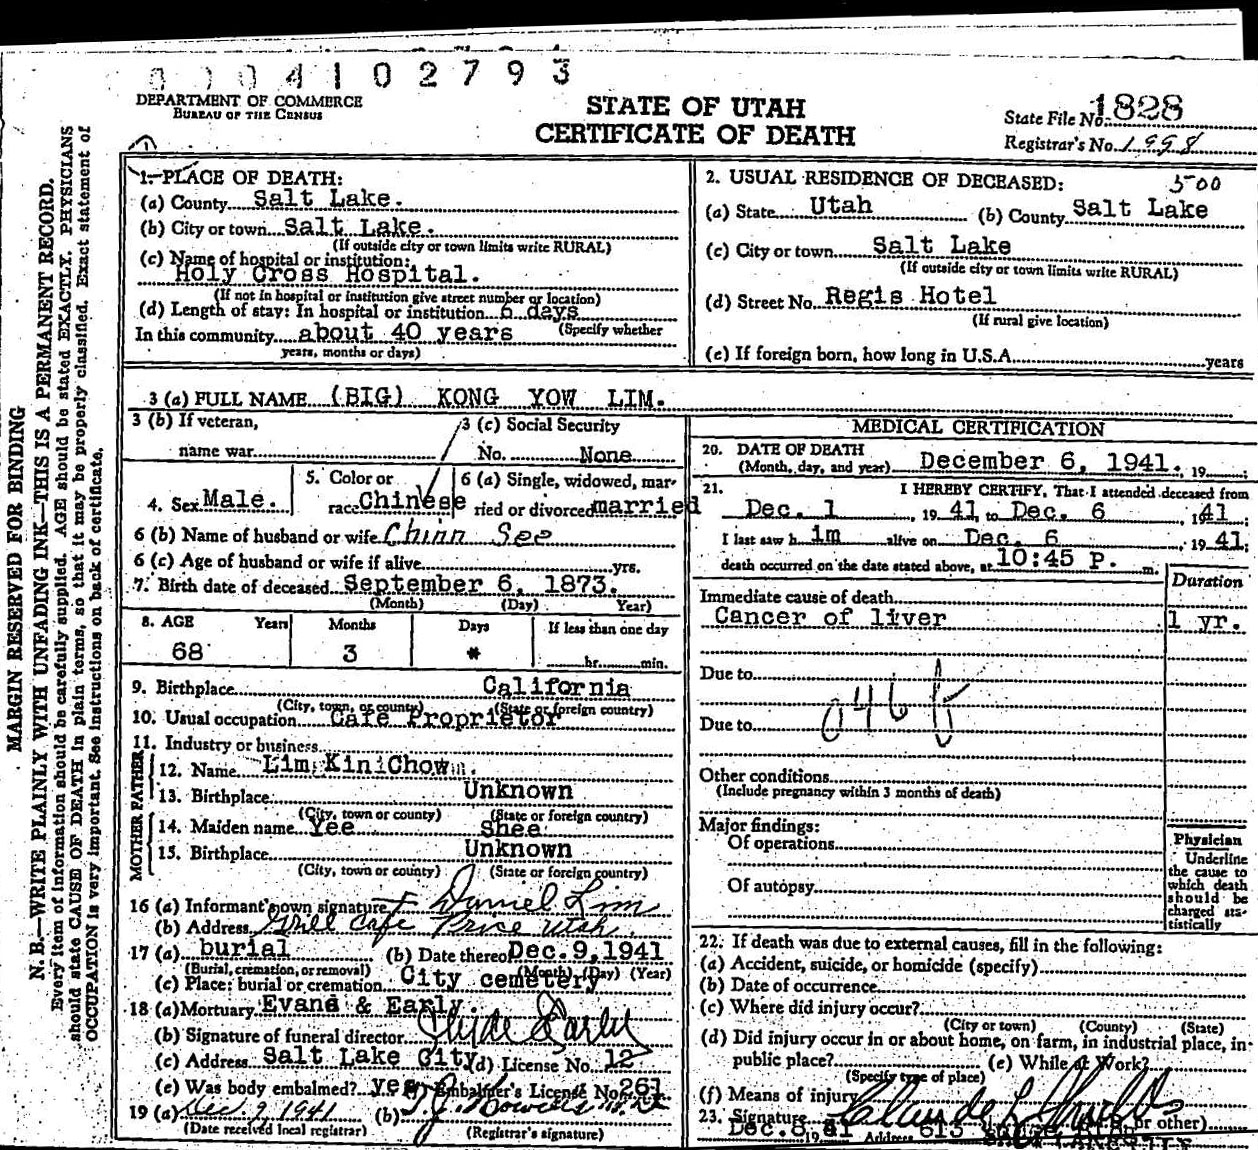 0004102793
DEPARTMENT OF COMMERCE
BUREAU OF THE CENSUS
STATE OF UTAH
CERTIFICATE OF DEATH
State File No. 1828
Registrar's No. 1998
MARGIN RESERVED FOR BINDING
N. B.—WRITE PLAINLY WITH UNFADING INK—THIS IS A PERMANENT RECORD.
Every item of information should be carefully supplied. AGE should be stated EXACTLY. PHYSICIANS
should state CAUSE OF DEATH in plain terms, so that it may be properly classified. Exact statement of
OCCUPATION is very important. See instructions on back of certificate.
1. PLACE OF DEATH:
(a) County Salt Lake.
(b) City or town Salt Lake.
(If outside city or town limits write RURAL)
(c) Name of hospital or institution:
Holy Cross Hospital.
(If not in hospital or institution give street number or location)
(d) Length of stay: In hospital or institution 6 days
In this community about 40 years (Specify whether
years, months or days)
2. USUAL RESIDENCE OF DECEASED: 500
(a) State Utah (b) County Salt Lake
(c) City or town Salt Lake
(If outside city or town limits write RURAL)
(d) Street No. Regis Hotel
(If rural give location)
(e) If foreign born, how long in U.S.A. years
3 (a) FULL NAME (BIG) KONG YOW LIM.
3 (b) If veteran,
name war
3 (c) Social Security
No. None
4. Sex Male.
5. Color or
race Chinese
6 (a) Single, widowed, mar-
ried or divorced married
6 (b) Name of husband or wife Chinn See
6 (c) Age of husband or wife if alive yrs.
7. Birth date of deceased September 6, 1873.
(Month) (Day) Year)
8. AGE Years Months Days If less than one day
68 3 * hr. min.
9. Birthplace California
(City, town, or county) (State or foreign country)
10. Usual occupation Cafe Proprietor
11. Industry or business
FATHER
12. Name Lim Kin Chow.
13. Birthplace Unknown
(City, town or county) (State or foreign country)
MOTHER
14. Maiden name Yee Shee
15. Birthplace Unknown
(City, town or county) (State or foreign country)
16 (a) Informant's own signature Daniel Lim
(b) Address Grill Cafe Price Utah.
17 (a) burial (b) Date thereof Dec. 9, 1941
(Burial, cremation, or removal) (Month) (Day) (Year)
(c) Place: burial or cremation City cemetery
18 (a) Mortuary Evans & Early.
(b) Signature of funeral director Clyde Early
(c) Address Salt Lake City (d) License No. 12
(e) Was body embalmed? yes Embalmer's License No. 261
19 (a) Dec. 9 1941 (b)
(Date received local registrar) (Registrar's signature)
MEDICAL CERTIFICATION
20. DATE OF DEATH
(Month, day, and year) December 6, 1941. 19
21. I HEREBY CERTIFY, That I attended deceased from
Dec. 1, 19 41 to Dec. 6, 19 41
I last saw h im alive on Dec. 6, 19 41;
death occurred on the date stated above, at 10:45 P. m.
Duration
Immediate cause of death
Cancer of liver 1 yr.
Due to
046
Due to
Other conditions
(Include pregnancy within 3 months of death)
Major findings:
Of operations
Of autopsy
Physician
Underline
the cause to
which death
should be
charged sta-
tistically
22. If death was due to external causes, fill in the following:
(a) Accident, suicide, or homicide (specify)
(b) Date of occurrence
(c) Where did injury occur?
(City or town) (County) (State)
(d) Did injury occur in or about home, on farm, in industrial place, in-
public place? (e) While at Work?
(Specify type of place)
(f) Means of injury
23. Signature Claude L. or other)
Dec. 8, 41 Address 613